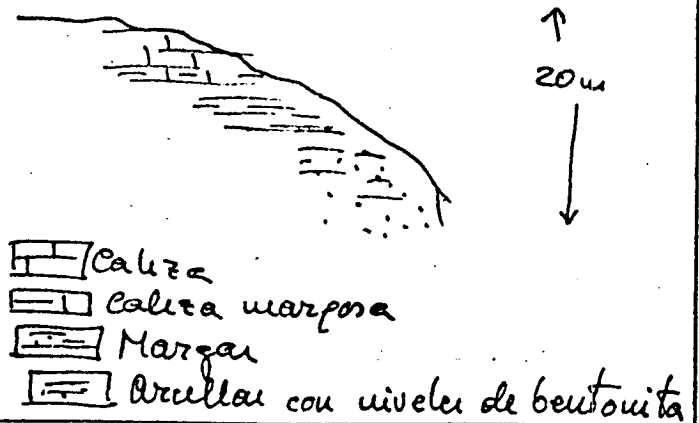 20 m
Caliza
Caliza margosa
Margas
Arcillas con niveles de bentonita